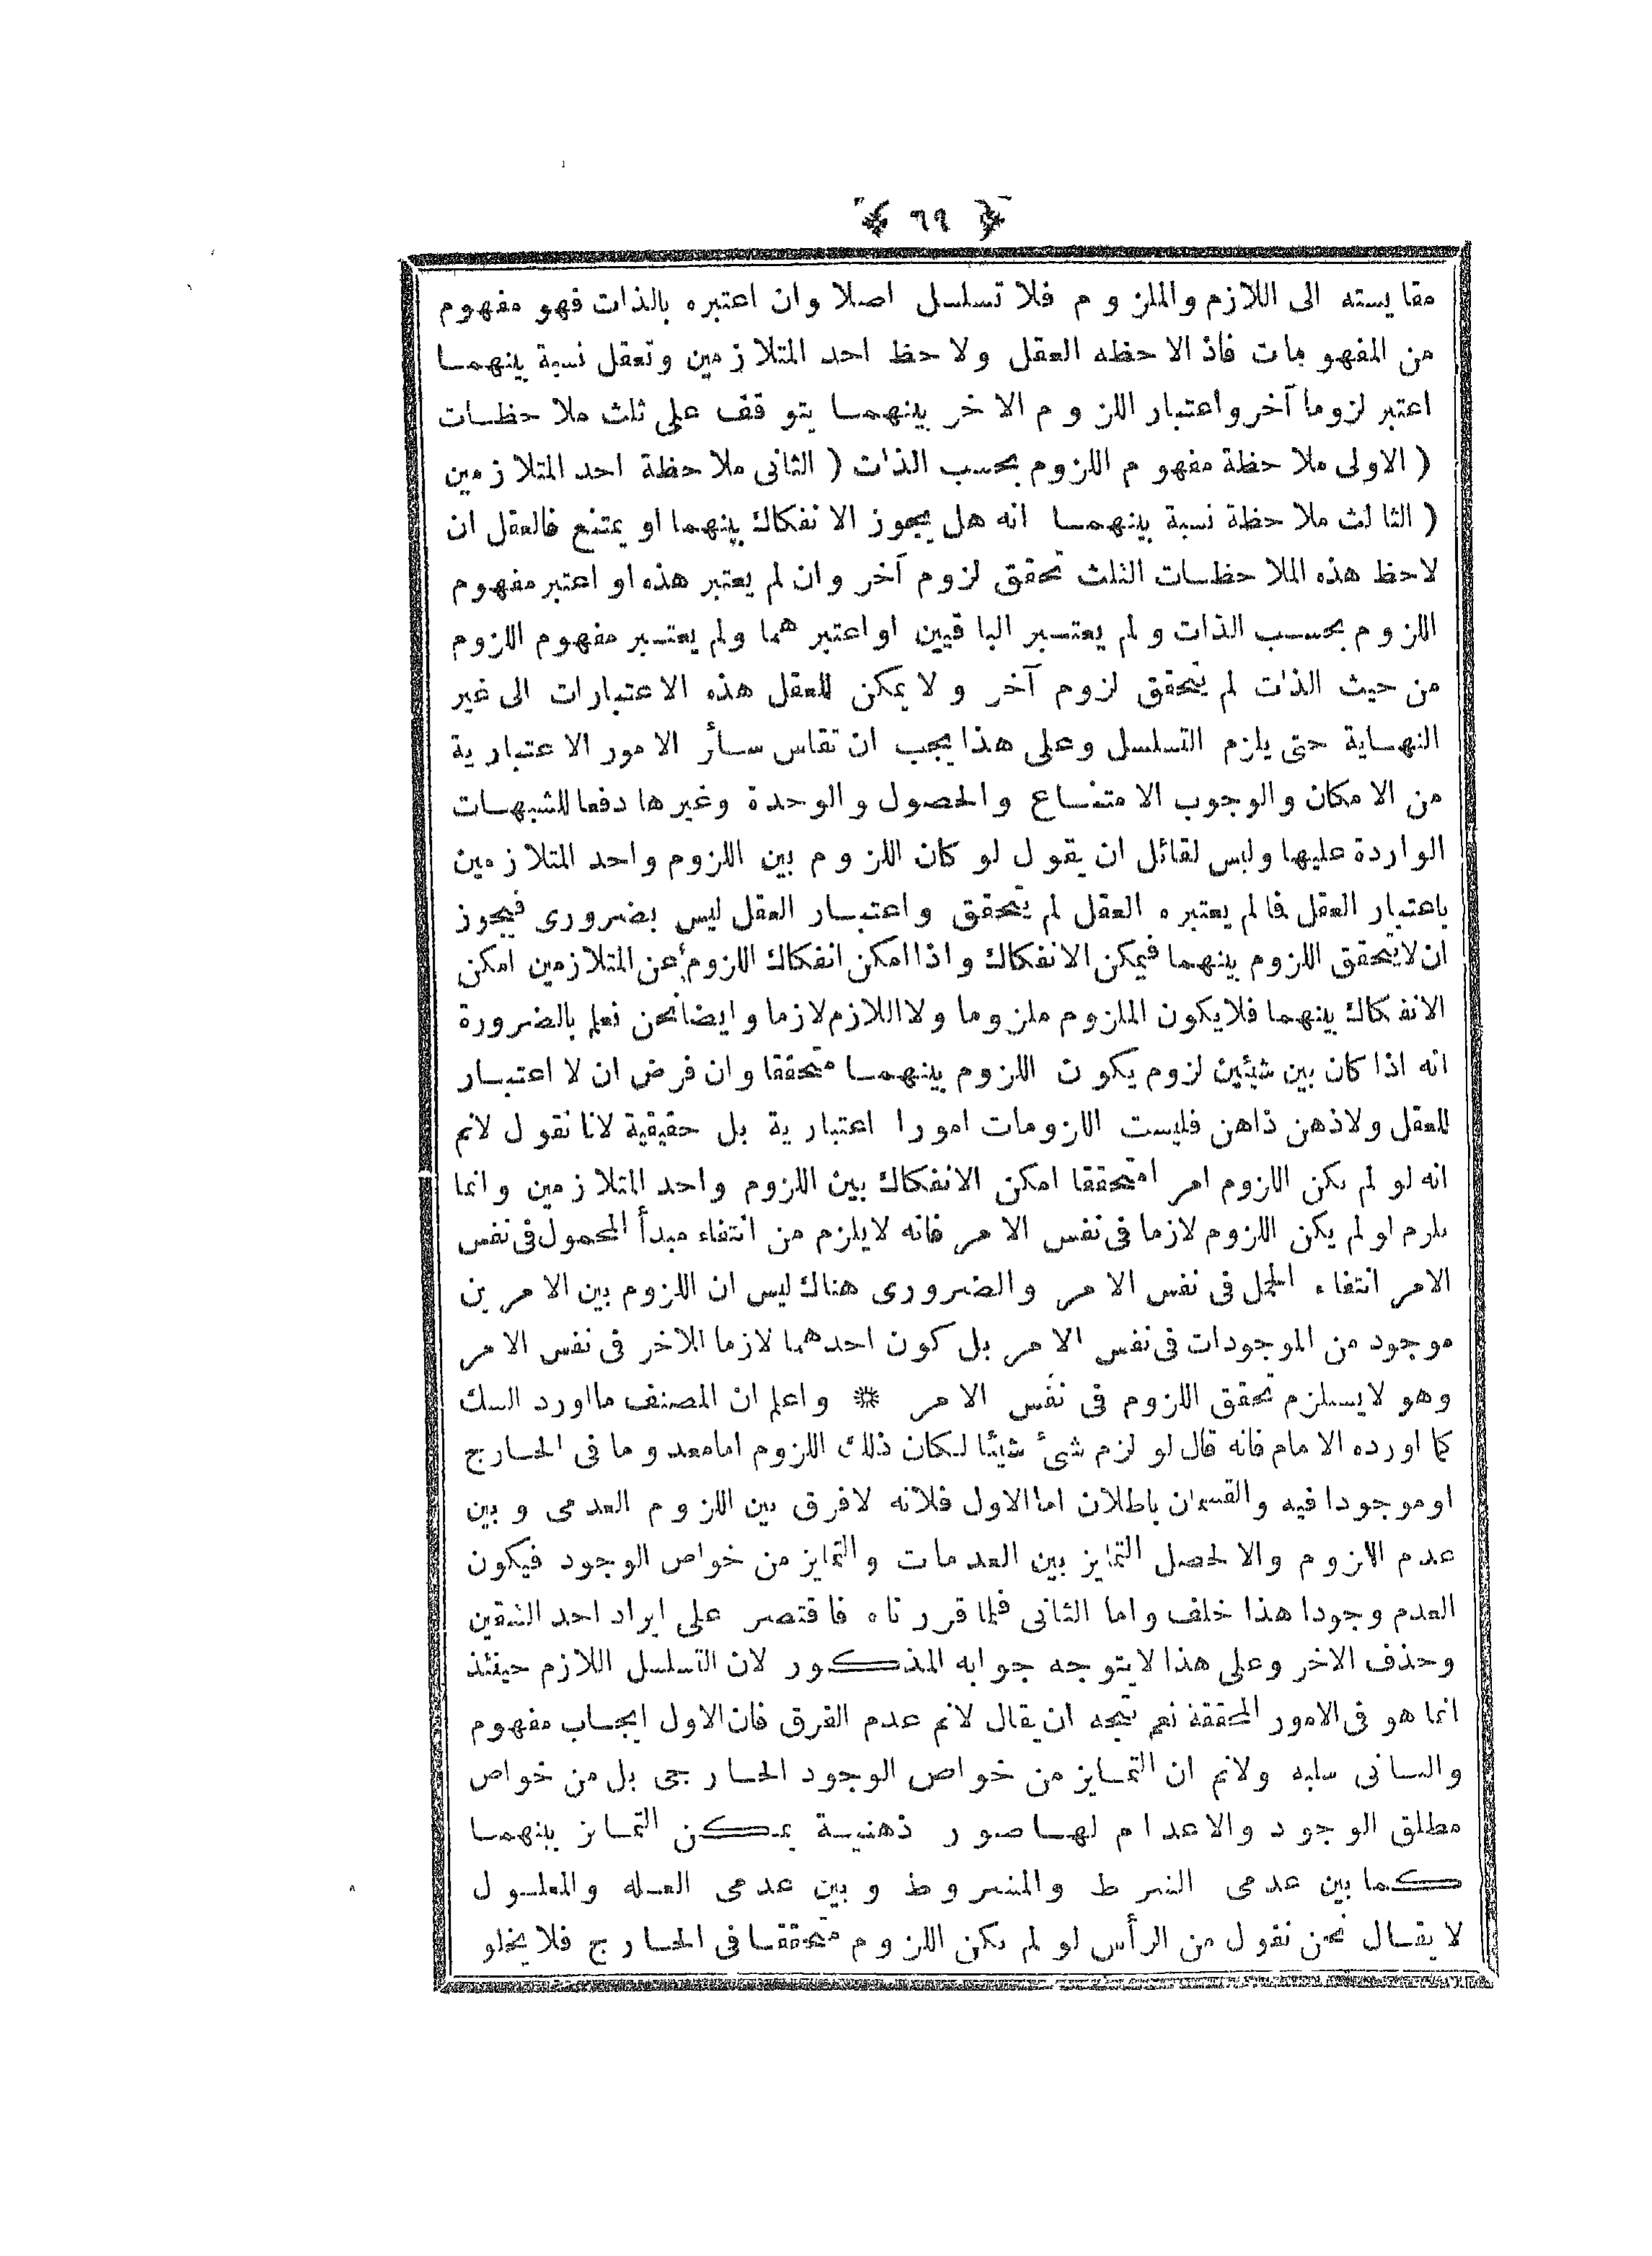 ﴿ ٦٩ ﴾
مقايسته الى اللازم والملزوم فلا تسلسل اصلا وان اعتبره بالذات فهو مفهوم
من المفهومات فاذا لاحظه العقل ولاحظ احد المتلازمين وتعقل نسبة بينهما
اعتبر لزوما آخر واعتبار اللزوم الاخر بينهما يتوقف على ثلث ملاحظات
( الاولى ملاحظة مفهوم اللزوم بحسب الذات ( الثانى ملاحظة احد المتلازمين
( الثالث ملاحظة نسبة بينهما انه هل يجوز الانفكاك بينهما او يمتنع فالعقل ان
لاحظ هذه الملاحظات الثلث تحقق لزوم آخر وان لم يعتبر هذه او اعتبر مفهوم
اللزوم بحسب الذات ولم يعتبر الباقيين او اعتبرهما ولم يعتبر مفهوم اللزوم
من حيث الذات لم يتحقق لزوم آخر ولا يمكن للعقل هذه الاعتبارات الى غير
النهاية حتى يلزم التسلسل وعلى هذا يجب ان تقاس سائر الامور الاعتبارية
من الامكان والوجوب الامتناع والحصول والوحدة وغيرها دفعا للشبهات
الواردة عليها وليس لقائل ان يقول لو كان اللزوم بين اللزوم واحد المتلازمين
باعتبار العقل فالم يعتبره العقل لم يتحقق واعتبار العقل ليس بضرورى فيجوز
ان لا يتحقق اللزوم بينهما فيمكن الانفكاك واذا امكن انفكاك اللزوم عن المتلازمين امكن
الانفكاك بينهما فلا يكون الملزوم ملزوما ولا اللازم لازما وايضا نحن نعلم بالضرورة
انه اذا كان بين شيئين لزوم يكون اللزوم بينهما متحققا وان فرض ان لا اعتبار
للعقل ولا ذهن ذاهن فليست اللزومات امورا اعتبارية بل حقيقية لانا نقول لانم
انه لو لم يكن اللزوم امرا متحققا امكن الانفكاك بين اللزوم واحد المتلازمين وانما
يلزم لو لم يكن اللزوم لازما فى نفس الامر فانه لا يلزم من انتفاء مبدأ المحمول فى نفس
الامر انتفاء الحمل فى نفس الامر والضرورى هناك ليس ان اللزوم بين الامرين
موجود من الموجودات فى نفس الامر بل كون احدهما لازما للاخر فى نفس الامر
وهو لا يستلزم تحقق اللزوم فى نفس الامر * واعلم ان المصنف ما اورد الشك
كما اورده الامام فانه قال لو لزم شئ شيئا لكان ذلك اللزوم اما معدوما فى الخارج
او موجودا فيه والقسمان باطلان اما الاول فلانه لا فرق بين اللزوم العدمى وبين
عدم اللزوم والا لحصل التمايز بين العدمات والتمايز من خواص الوجود فيكون
العدم وجودا هذا خلف واما الثانى فلما قررناه فاقتصر على ايراد احد الشقين
وحذف الاخر وعلى هذا لا يتوجه جوابه المذكور لان التسلسل اللازم حينئذ
انما هو فى الامور المحققة نعم يتجه ان يقال لانم عدم الفرق فان الاول ايجاب مفهوم
والثانى سلبه ولانم ان التمايز من خواص الوجود الخارجى بل من خواص
مطلق الوجود والاعدام لها صور ذهنية يمكن التمايز بينهما
كما بين عدمى الشرط والمشروط وبين عدمى العلة والمعلول
لا يقال نحن نقول من الرأس لو لم يكن اللزوم متحققا فى الخارج فلا يخلو